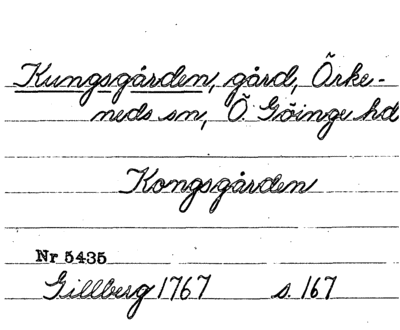 Kungsgården, gård, Örke-
neds sn, Ö. Göinge hd
Kongsgården
Nr 5435
Gillberg 1767 s. 167